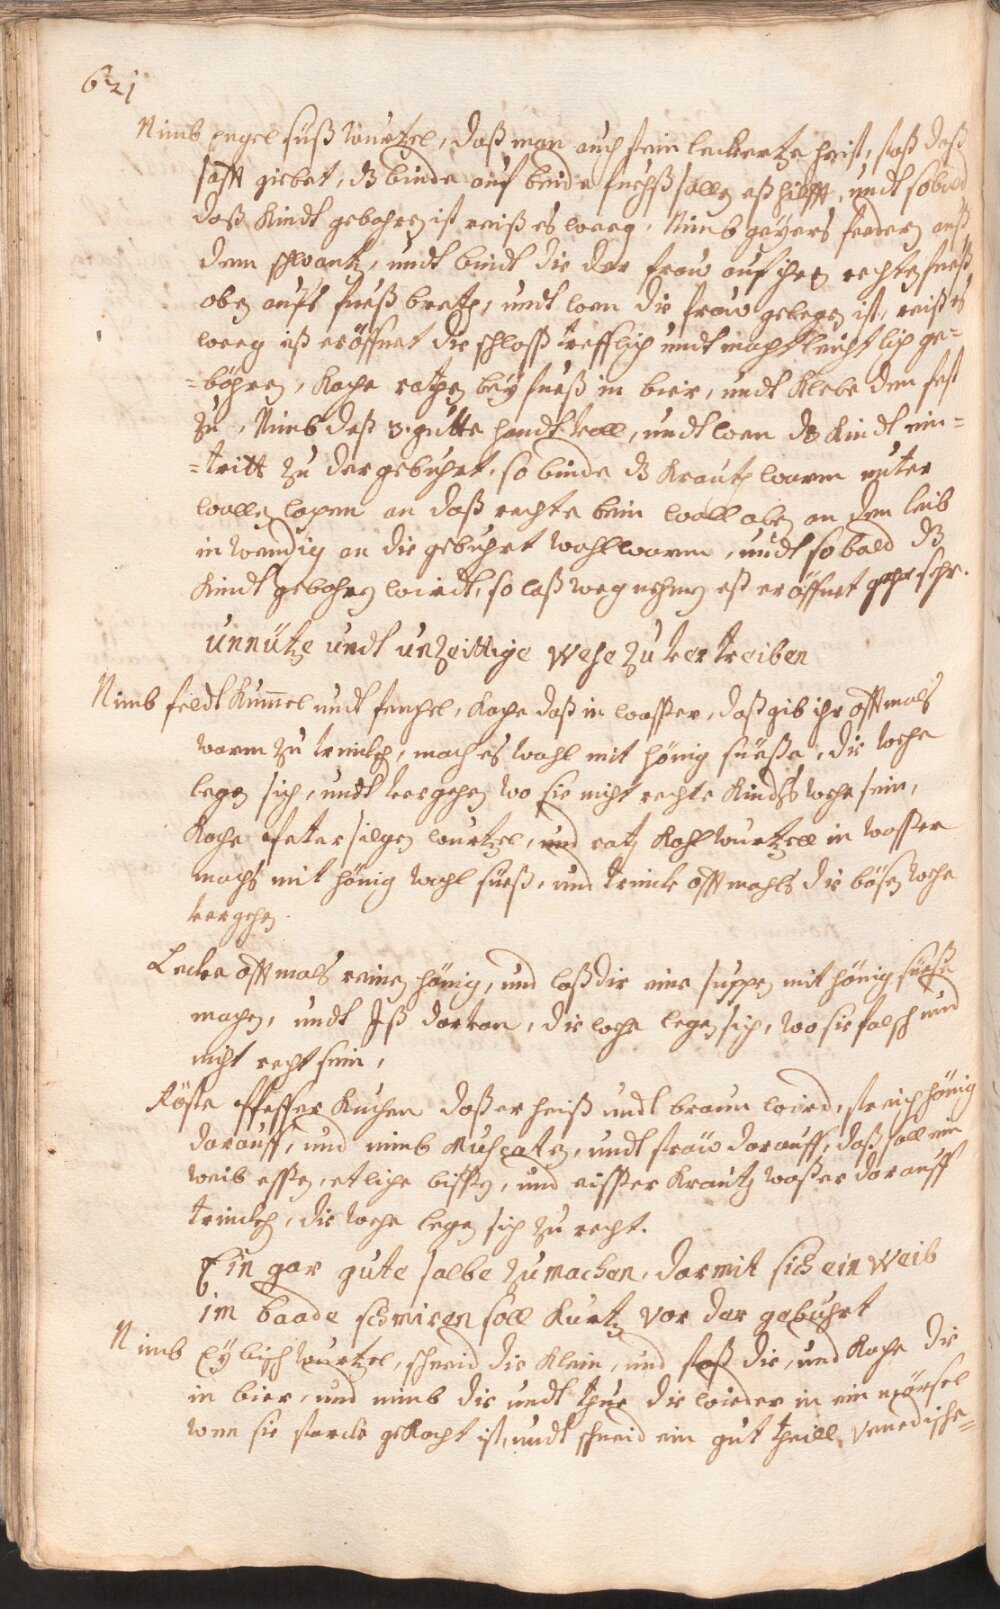 621
Nimb Engel süß Wurtzel, daß man auch stein leckertze heist, stoß daß
safft giebet, dz binde auf beide fuehß sollen eß hilfft, undt sobald
daß Kindt gebohren ist reiß es weeg, Nimb geyers federn auß
dem schwantz, undt bindt die der frau auf ihren rechten fueß
oben aufs fueß bretz, undt wen die frau gelegen ist, reiß es
weeg eß eröffnet die schloß trefflich undt macht leichtlich ge=
=böhren, Koche bey fueß in bier, undt Klebe den fest
zu, Nimb deß 3. gutte handt voll, undt wen dz Kindt ein=
=tritt zu der gebuhrt, so binde dz Krautz warm unter
wollen lapen an daß rechte bein woll oben an dem leib
inwendig an die gebuhrt wohl warm, undt so bald dz
Kindt gebohren wirdt, so laß weg nehmen eß eröffnet gahr sehr.
unnütze undt unzeittige Wehe zu vertreiben
Nimb feldt Kümmel undt fenchel, Koche daß in wasser, daß gib ihr offtmals
warm zu trincken, mach es wohl mit hönig süeße, die wehe
legen sich, undt vergehen wo sie nicht rechte Kindts wehe sein,
Koche Petersilgen wurtzel, und Kohl wurtzell in wasser
machs mit hönig wohl süeß, und trinck offtmahls die bösen wehe
vergehen
Lecke offtmals reinen hönig, und laß dir eine suppen mit hönig süeße
machen, undt Iß darvon, die wehe legen sich, wo sie falsch und
nicht recht sein,
Röste Pfeffer Kuchen daß er heiß undt braun wird, streich hönig
darauff, und nimb Muscaten, undt sträw darauff, daß soll ein
weib essen, etliche bissen, und eisser Krautz wasser darauff
trincken, die wehe legen sich zu recht.
Ein gar gute salbe zu machen, darmit sich ein Weib
im baade schmiren soll Kurtz vor der gebuhrt
Nimb Eybisch wurtzel, schneid die Klein, und stoß die, und Koche die
in bier, und nimb die undt thue die wieder in ein mörsel
wen sie starck gekocht ist, undt schneid ein gut theill, Venedische=